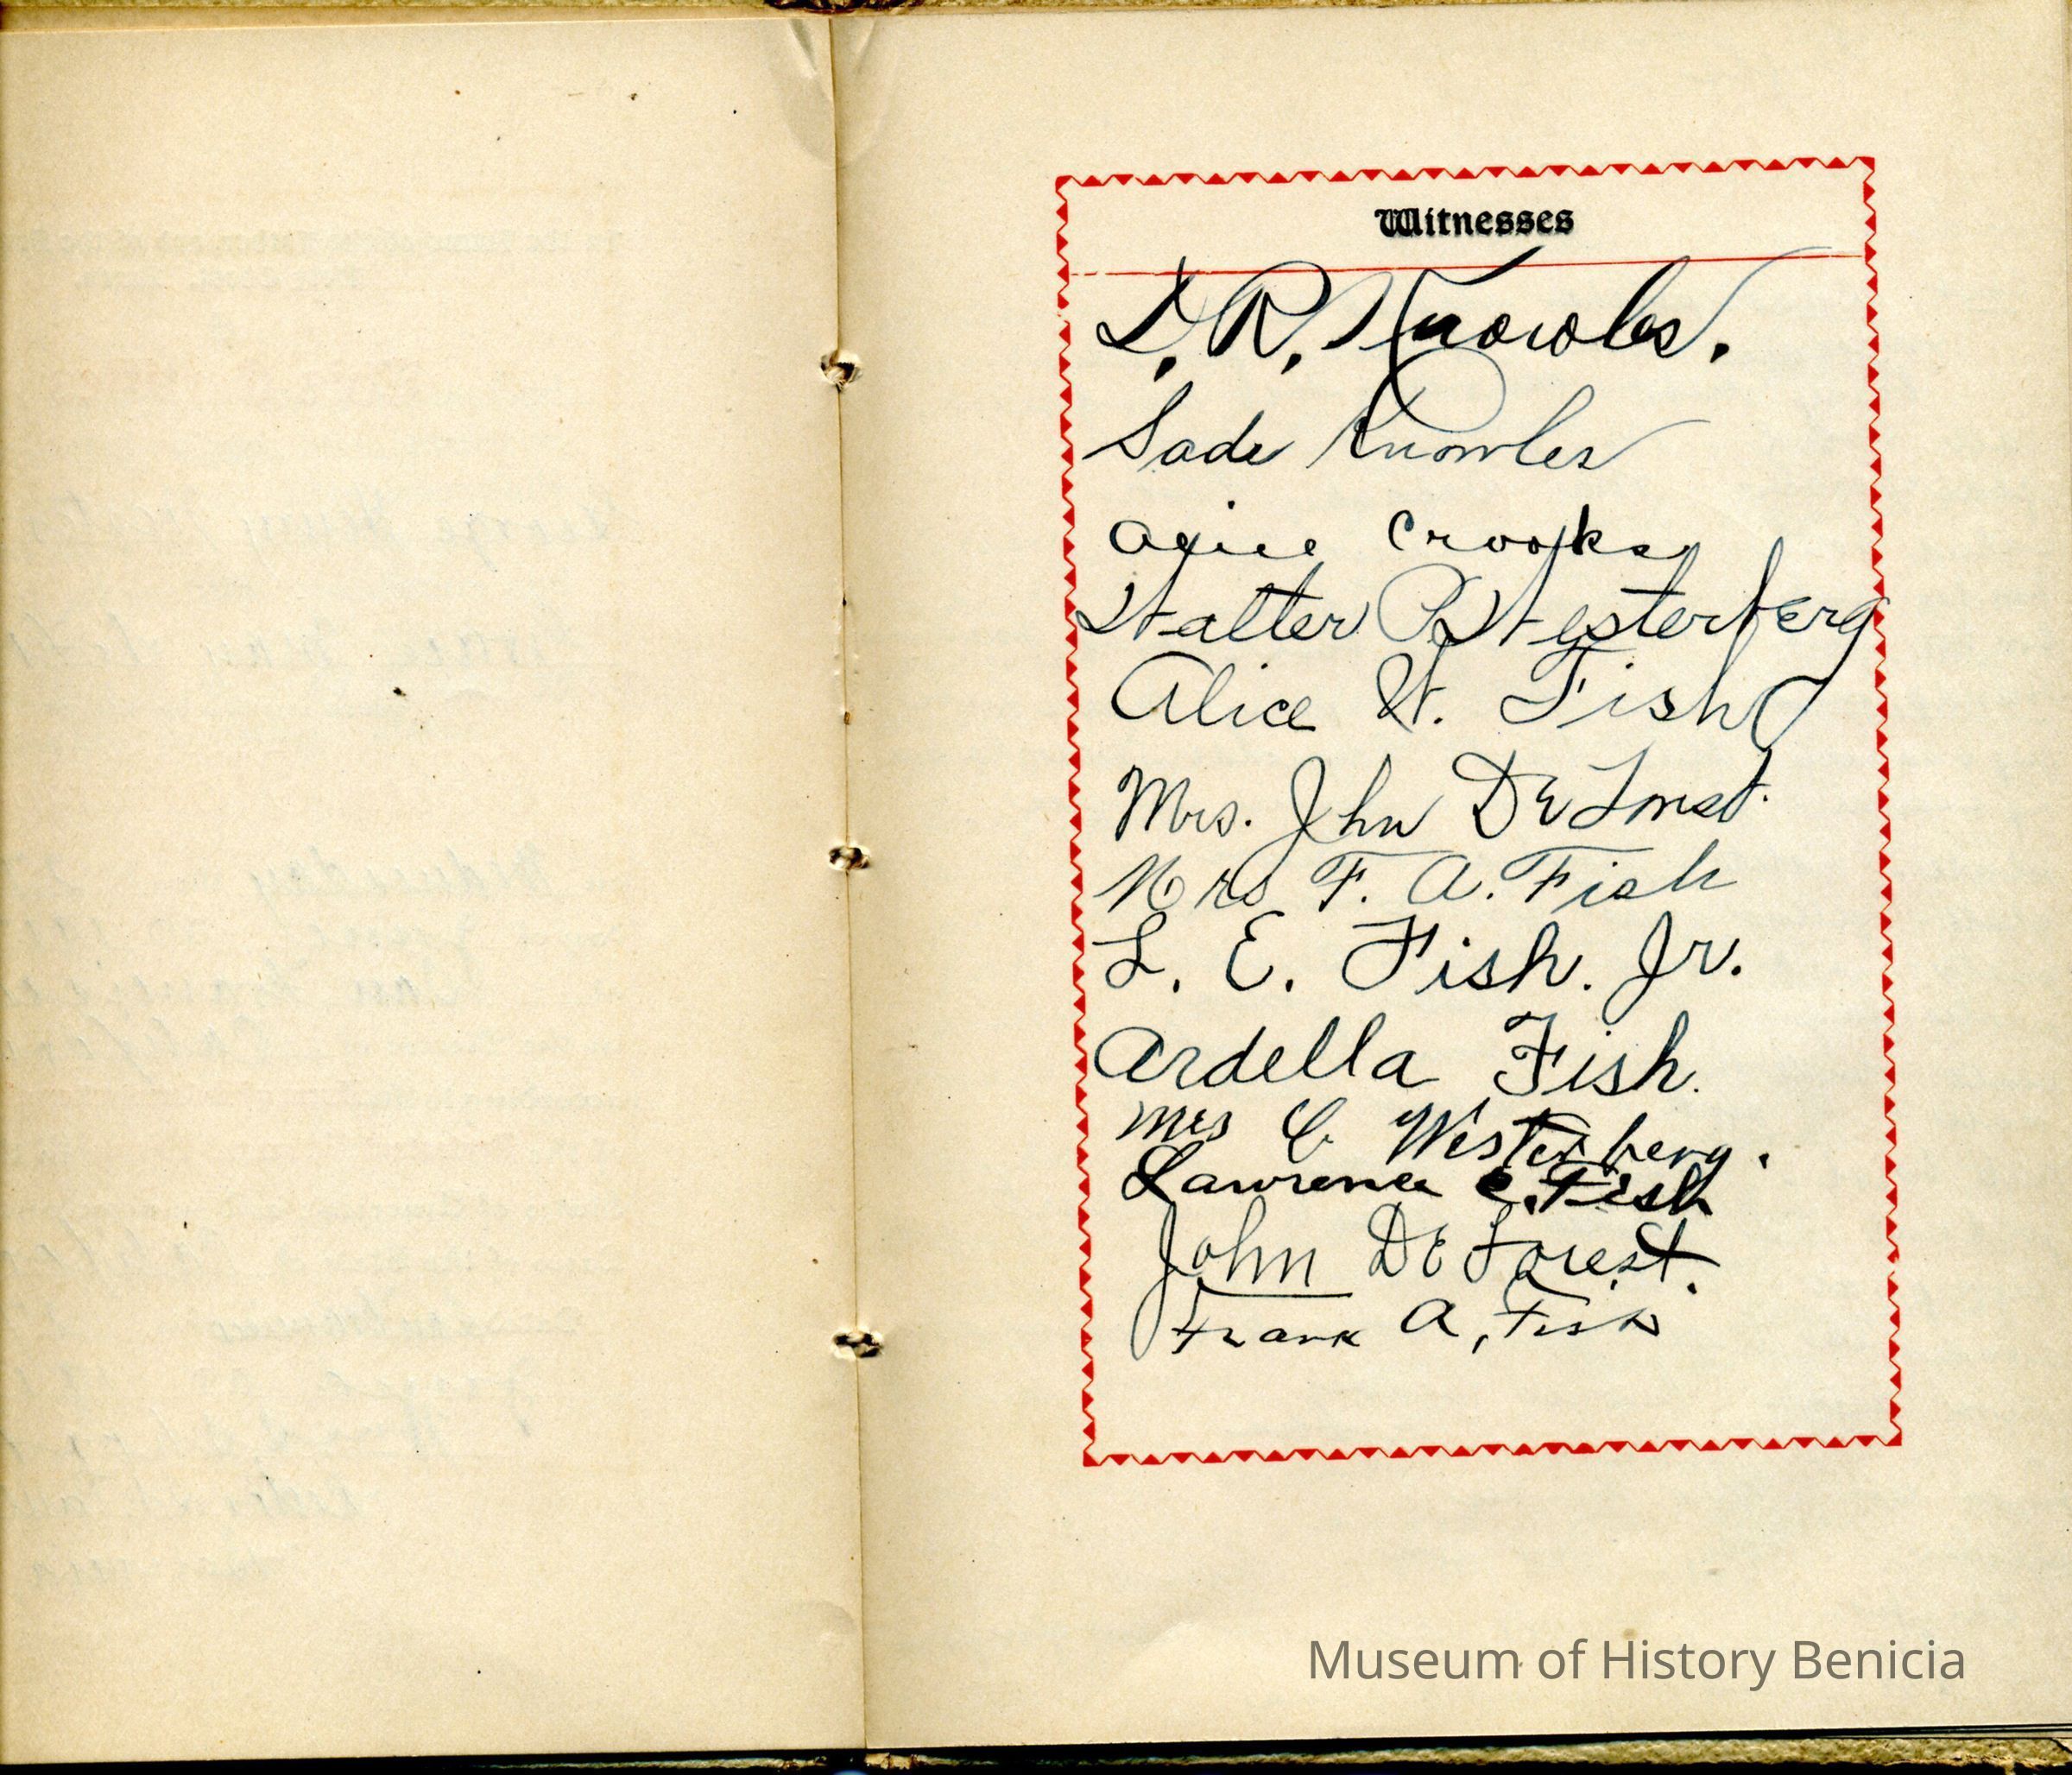 Witnesses
D. R. Knowles.
Sade Knowles
Crooks
Walter P. Westerberg
Alice W. Fish
Mrs. John DeForest.
Mrs F. A. Fish
L. E. Fish. Jr.
Ardella Fish.
Mrs C Westerberg.
Lawrence E. Fish
John DeForest.
Frank A, Fish
Museum of History Benicia